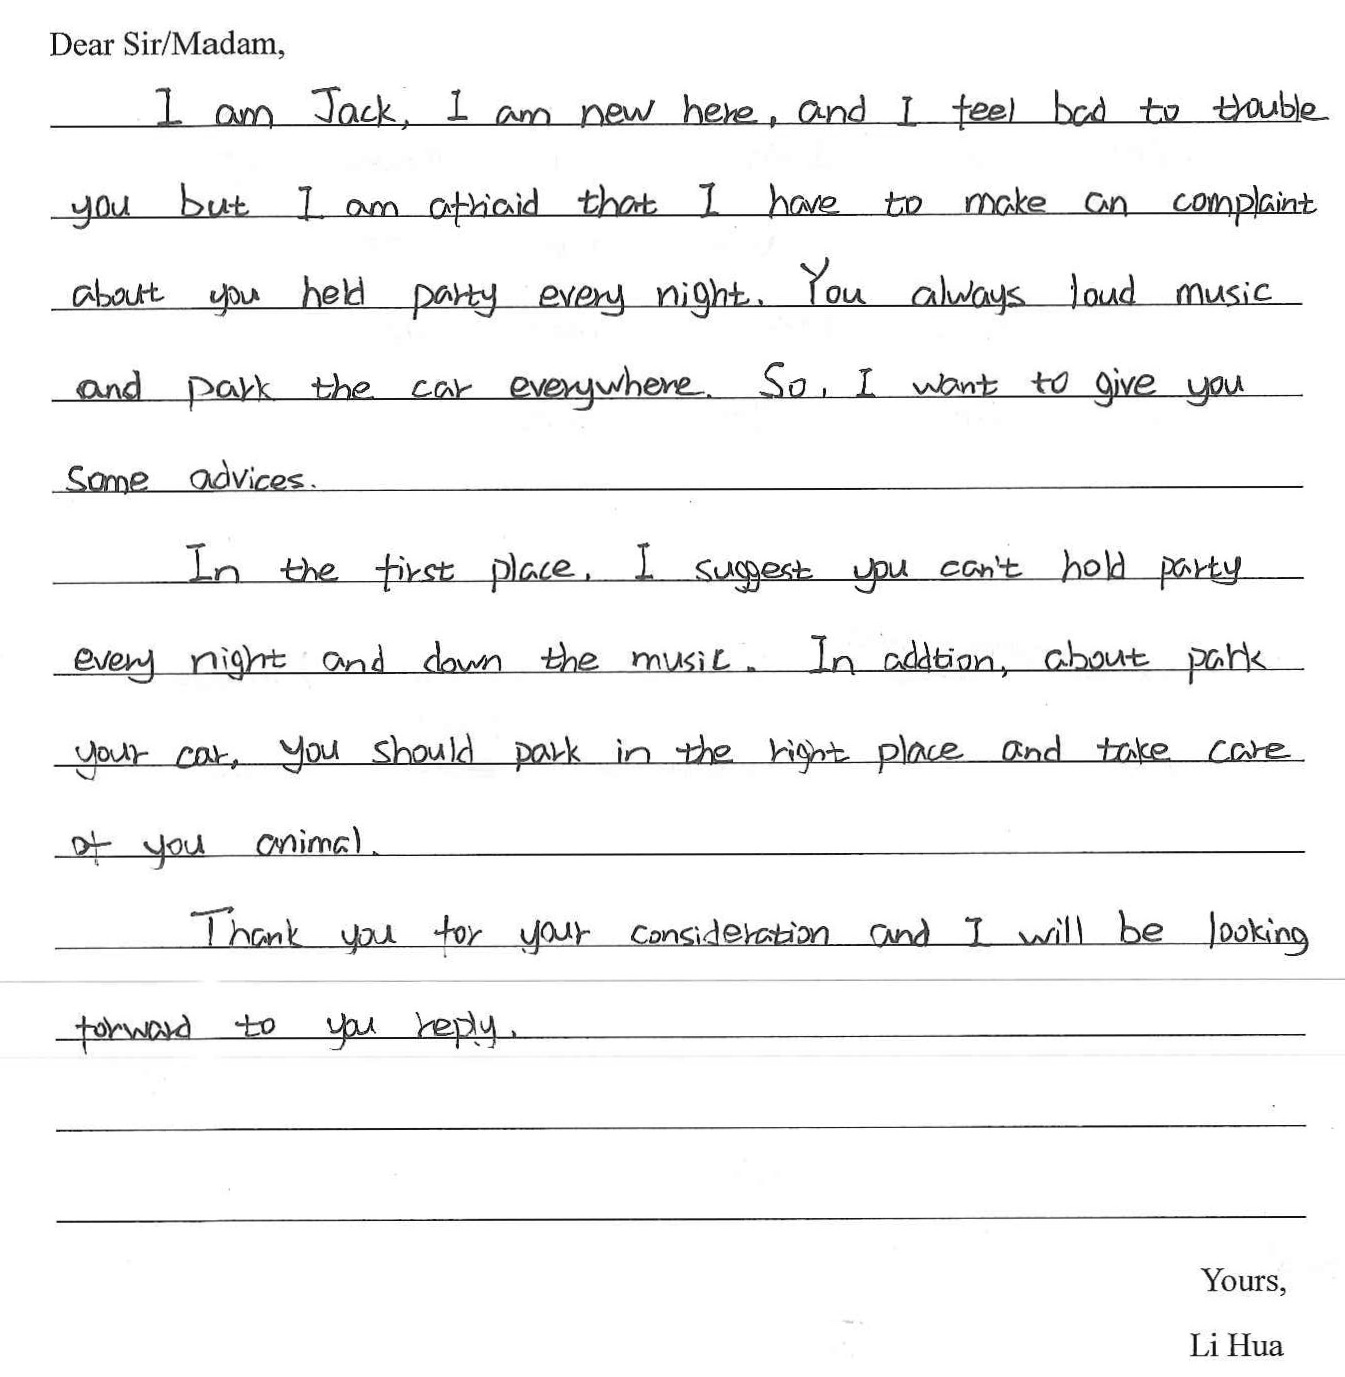 Dear Sir/Madam,
I am Jack, I am new here, and I feel bad to trouble
you but I am afriaid that I have to make an complaint
about you held party every night. You always loud music
and park the car everywhere. So, I want to give you
some advices.
In the first place, I suggest you can't hold party
every night and down the music. In addtion, about park
your car, you should park in the right place and take care
of you animal.
Thank you for your consideration and I will be looking
forward to you reply.
Yours,
Li Hua